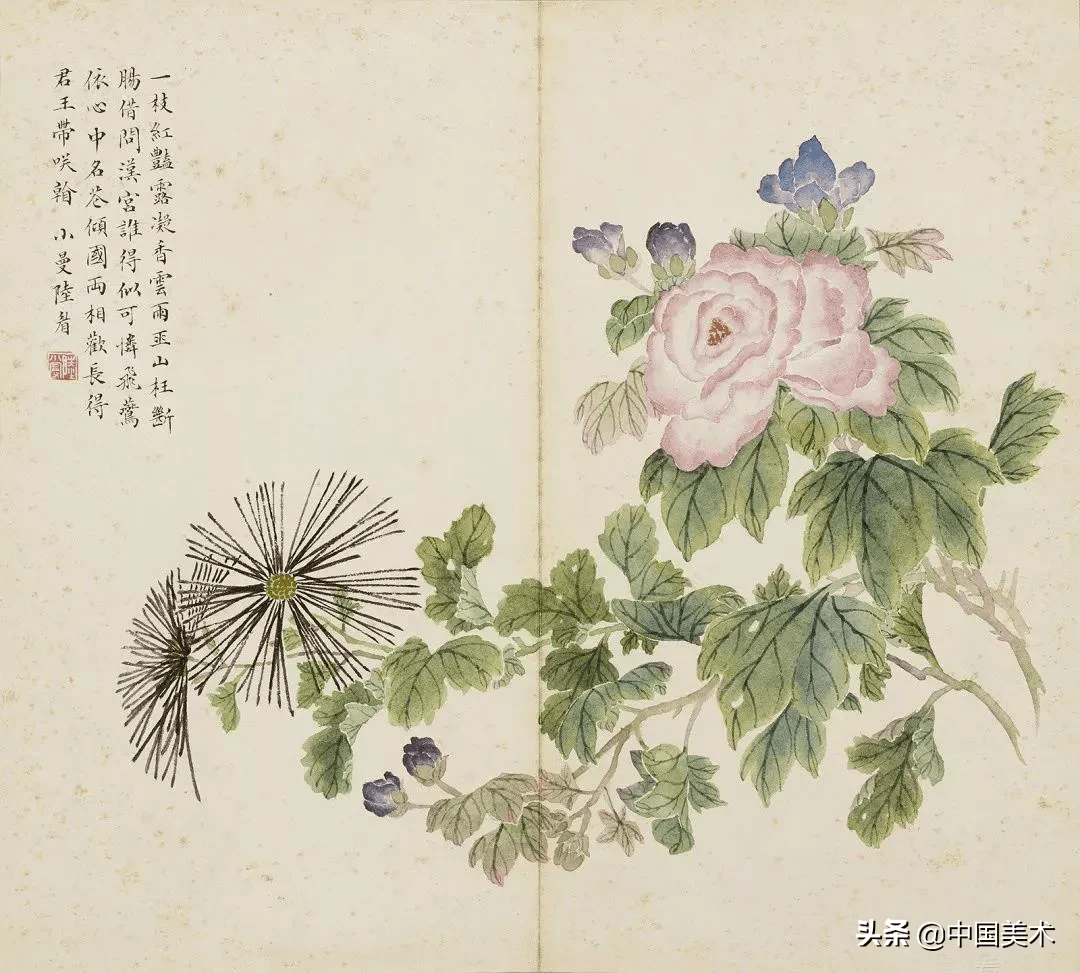 一枝紅豔露凝香雲雨巫山枉斷
腸借問漢宮誰得似可憐飛鷰
依心中名花傾國兩相歡長得
君王帶咲翰 小曼陸眉
陸小曼
头条 @中国美术